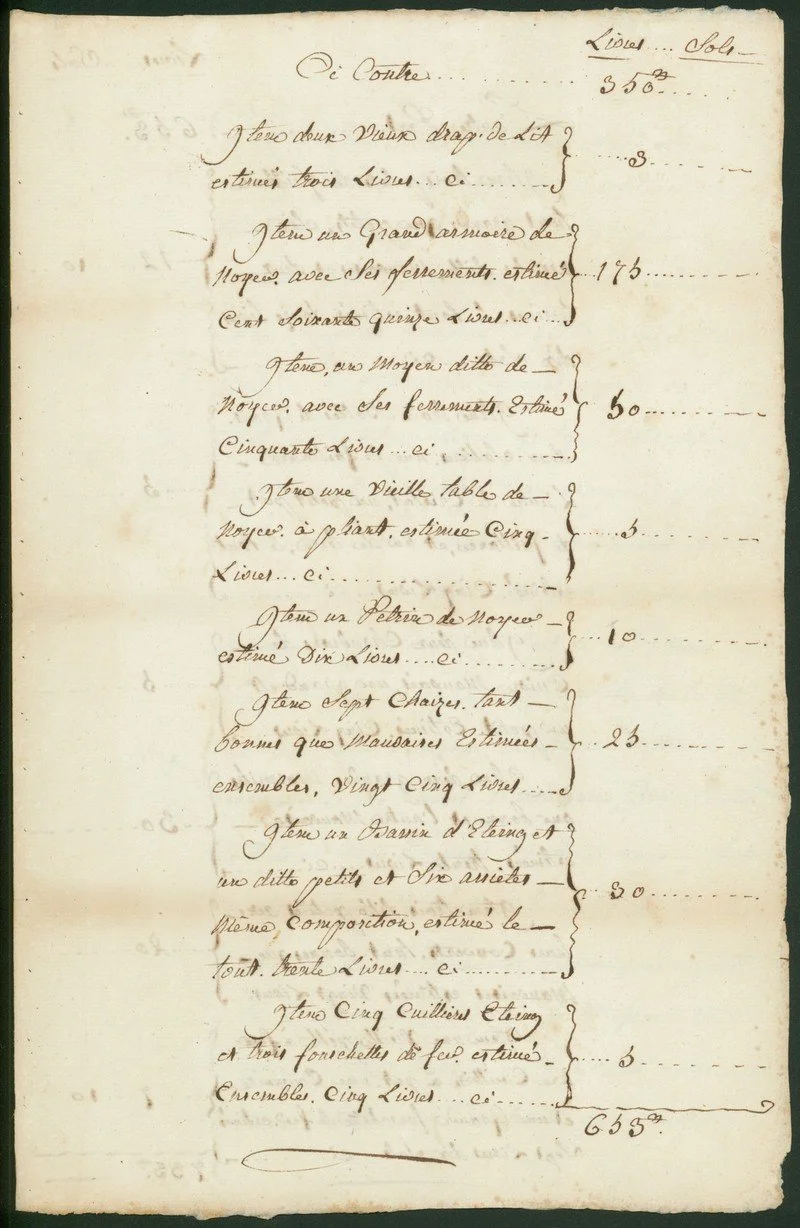 Livres ... Sols
Ci Contre ............ 350tt ....
Item deux Vieux drap. de Lit
estimés trois Livres ... ci ........ 3 ........
Item un Grand armoire de
Noyer. avec Ses ferrements. estimé 175 ........
Cent Soixante quinze Livres .. ci ...
Item, un Moyen ditto de —
Noyer. avec Ses ferrements. Estimé 50 ........
Cinquante Livres ... ci ..........
Item une Vieille table de —
Noyer. à pliant. estimée Cinq - ..... 5 ........
Livres ... ci ....................
Item un Petrin de Noyer —
estimé Dix Livres .... ci ......... 10 ........
Item Sept Chaizes. tant —
bonnes que Mauvaises Estimées - .. 25 ........
ensembles, Vingt Cinq Livres .....
Item un Bassin d'Eteing et
un ditto petits et Six assietes — .. 30 ........
Même, composition, estimé le —
tout. trente Livres .... ci ........
Item Cinq Cuillieres Eteing
et trois fourchettes de fer. estimé - .... 5 ........
Ensembles. Cinq Livres .... ci .....
655tt.